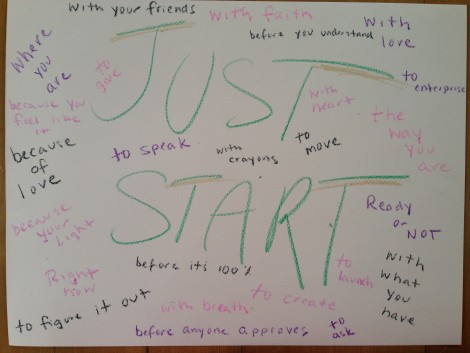 with your friends
with faith
before you understand
with
love
where
you
are
to
give
JUST
to
enterprise
because you
feel like
it
with
heart
the
way
you
are
because
of
love
to speak
with
crayons
to
move
START
Ready
or
NOT
because
your
Light
Right
now
before it's 100%
to
launch
with
what
you
have
to figure it out
with breath
to create
before anyone approves
to
ask